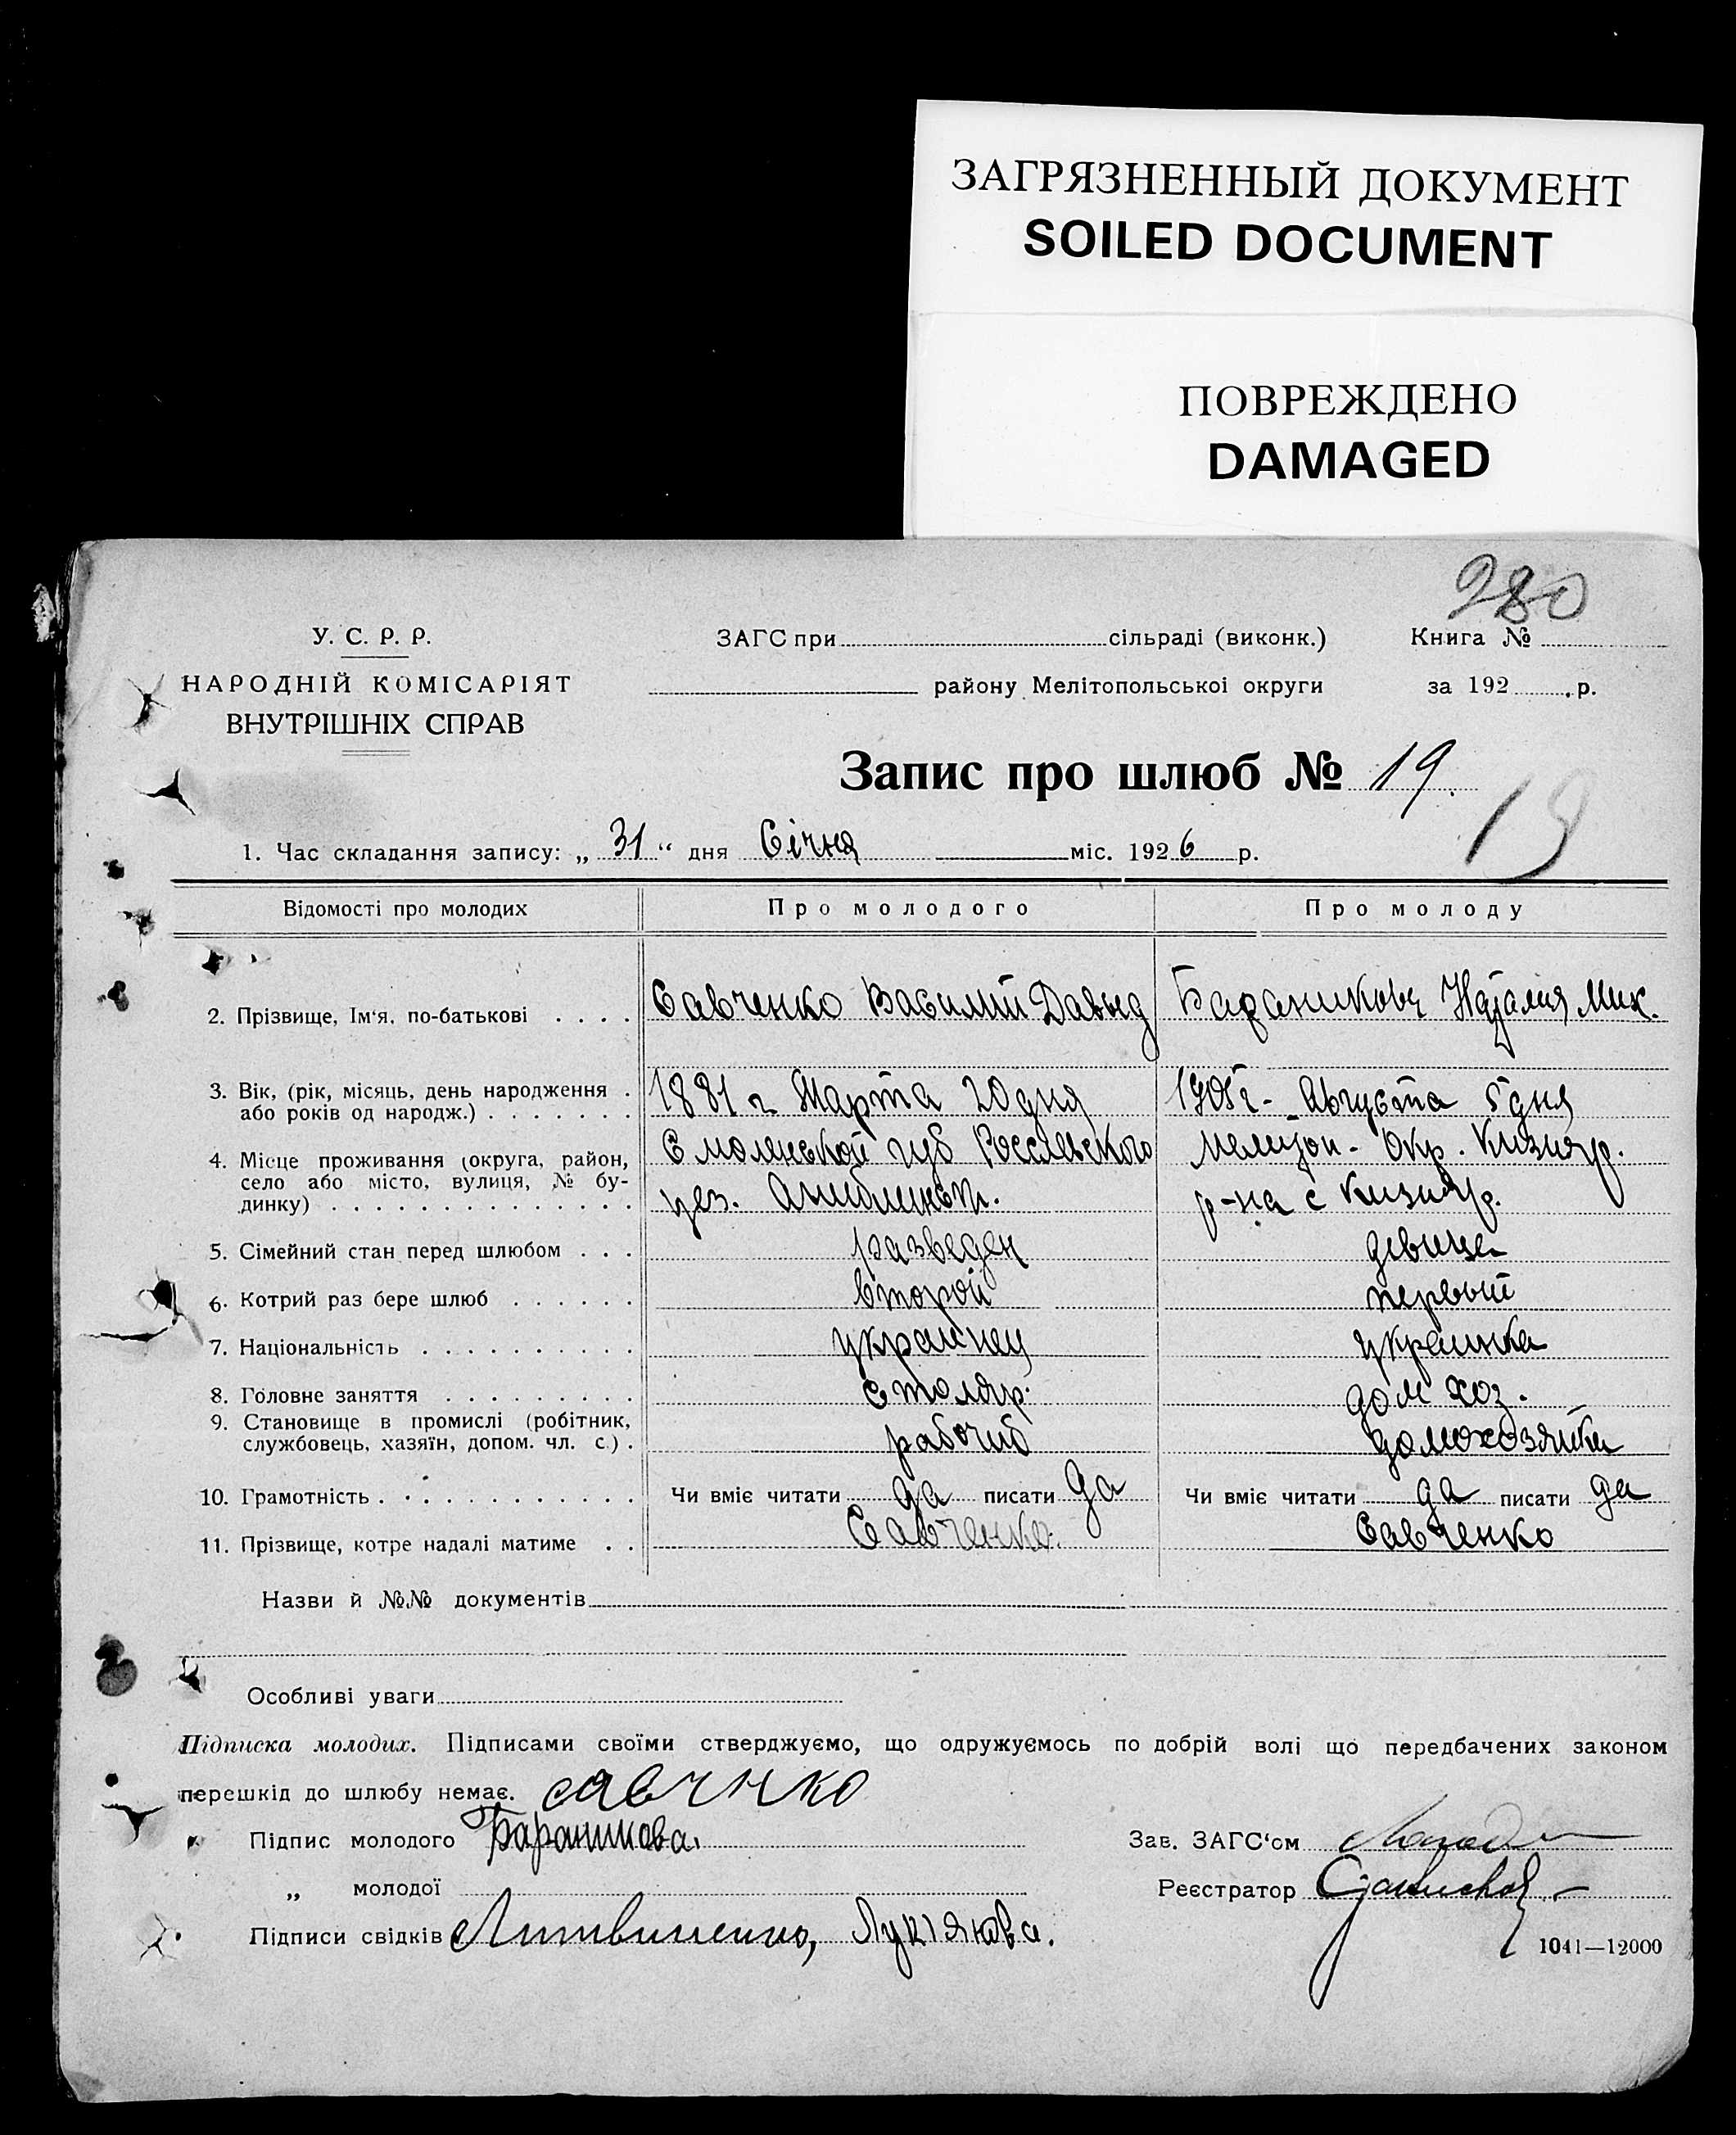 ЗАГРЯЗНЕННЫЙ ДОКУМЕНТ
SOILED DOCUMENT
ПОВРЕЖДЕНО
DAMAGED
280
У. С. Р. Р.
НАРОДНІЙ КОМІСАРІЯТ
ВНУТРІШНІХ СПРАВ
ЗАГС при сільраді (виконк.) Книга №
району Мелітопольської округи за 192 р.
Запис про шлюб № 19.
19
1. Час складання запису: „ 31 “ дня Січня міс. 1926 р.
Відомості про молодих Про молодого Про молоду
2. Прізвище, Ім'я, по-батькові . . . . Савченко Василий Давыд Бараникова Наталия Мих.
3. Вік, (рік, місяць, день народження . 1881 г Марта 20 дня 1905 г - Августа 5 дня
або років од народж.) . . . . . . .
4. Місце проживання (округа, район, Смоленской губ Рославского Мелитоп - Окр. Кизияр.
село або місто, вулиця, № бу-
динку) . . . . . . . . . . . . . . р-на с Кизияр.
5. Сімейний стан перед шлюбом . . . разведен девица
6. Котрий раз бере шлюб . . . . . . второй первый
7. Національність . . . . . . . . . . украинец украинка
8. Головне заняття . . . . . . . . . столяр. дом хоз.
9. Становище в промислі (робітник, рабочий домохозяйка
службовець, хазяїн, допом. чл. с.) .
10. Грамотність . . . . . . . . . . . . Чи вміє читати да писати да Чи вміє читати да писати да
11. Прізвище, котре надалі матиме . . Савченко. Савченко
Назви й №№ документів
Особливі уваги
Підписка молодих. Підписами своїми стверджуємо, що одружуємось по добрій волі що передбачених законом
перешкід до шлюбу немає. савчнко
Підпис молодого Бараникова Зав. ЗАГС'ом
„ молодої Реєстратор
Підписи свідків Литвиненко, Лукіянова.
1041—12000